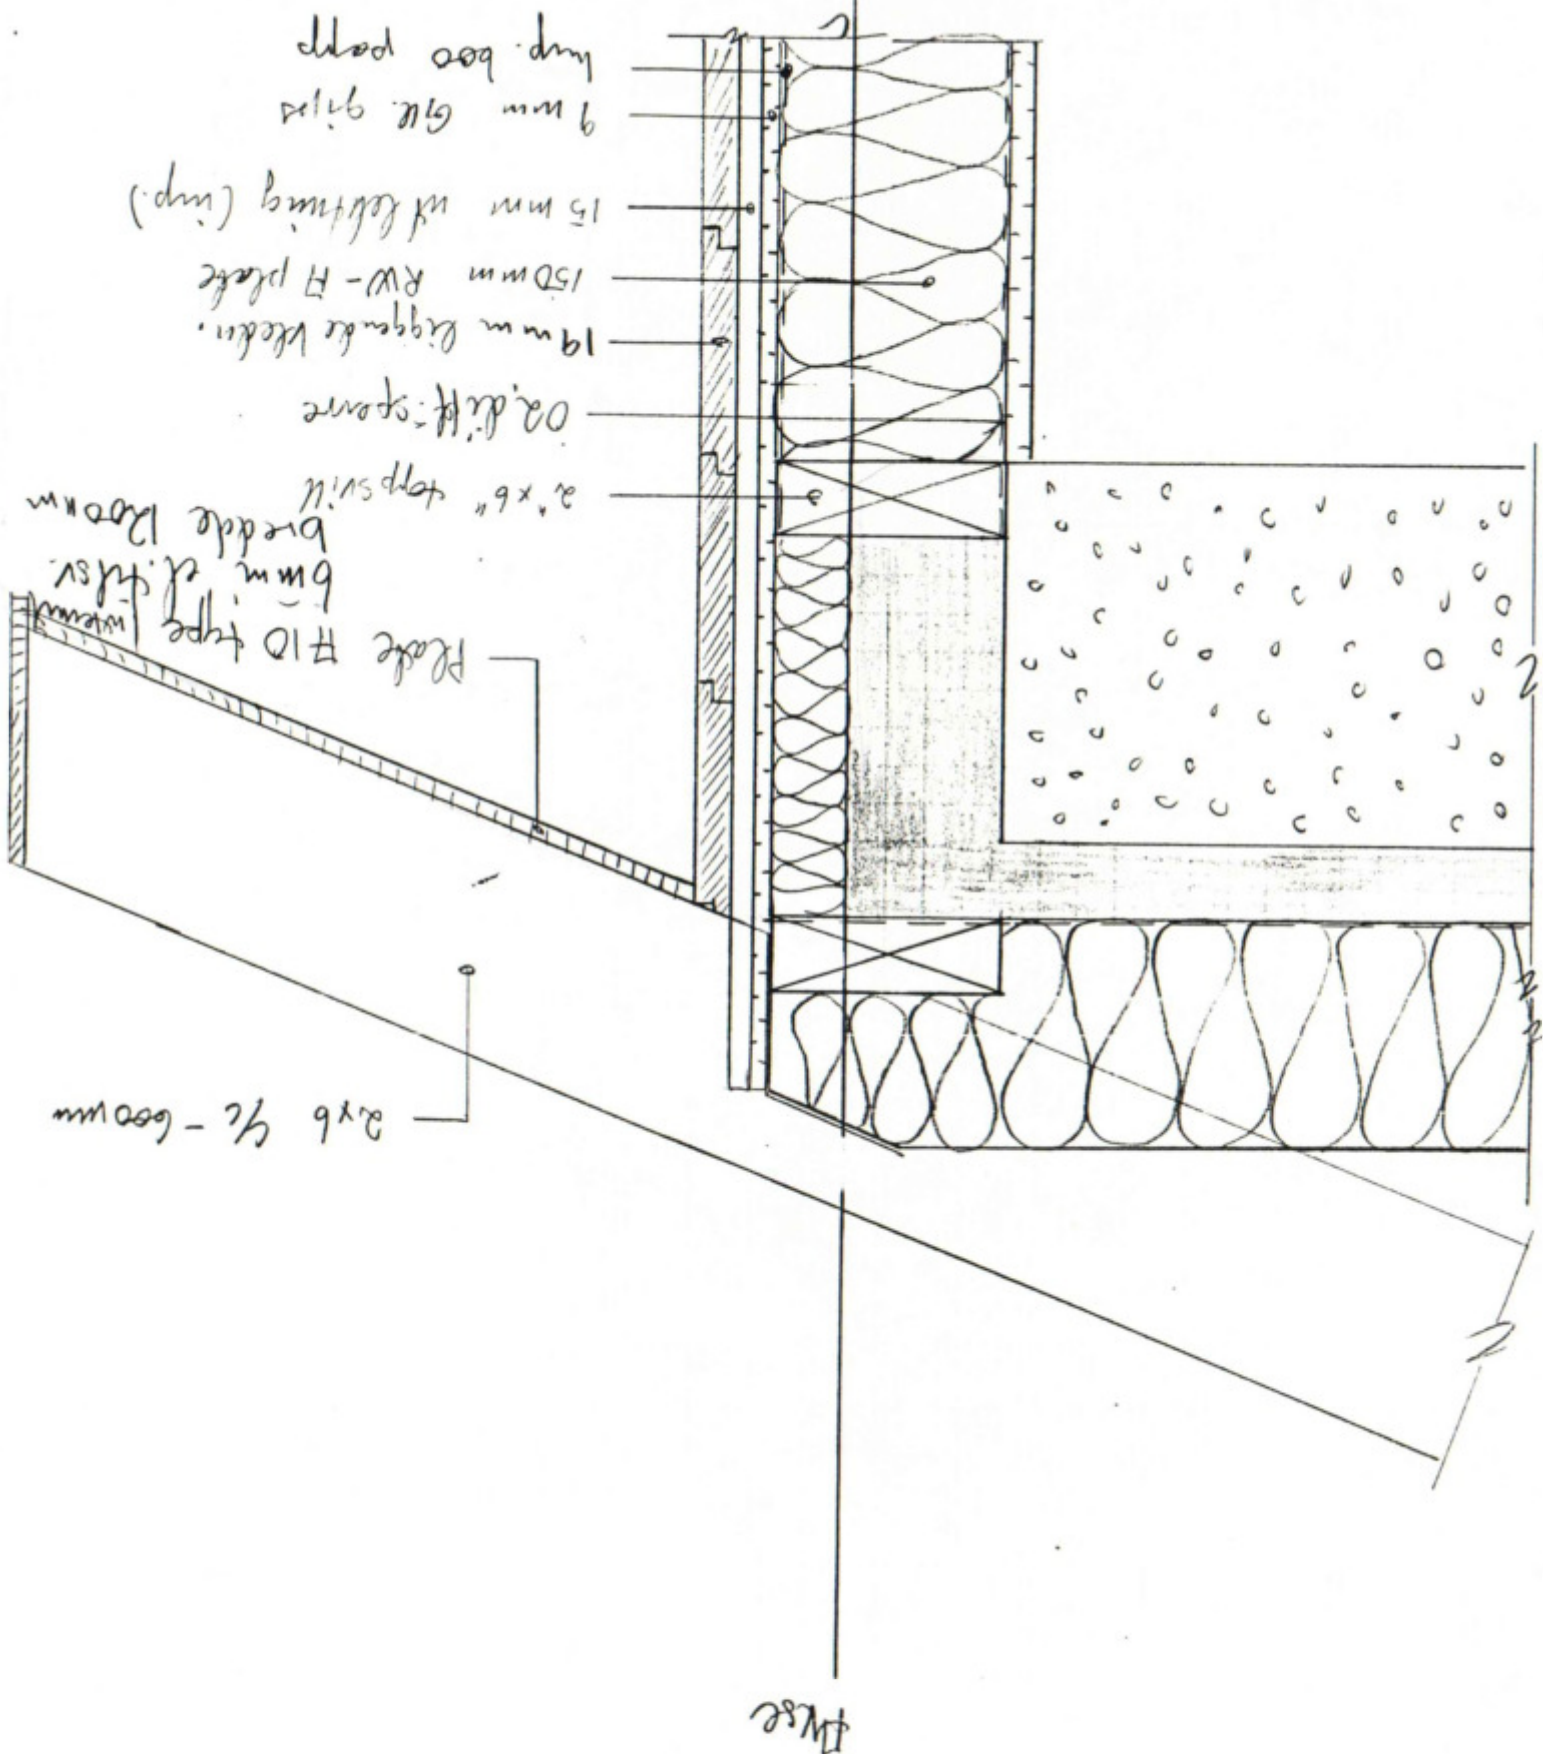 Akse
2x6 c/c - 600mm
Plate A10 type Internit
6mm, el. tilsv.
bredde 1200mm
2"x6" toppsvill
02, diff-sperre
19mm liggende kledn.
150mm RW-A plate
15mm utlektning (imp.)
9mm GU. gips
Imp. 600 papp